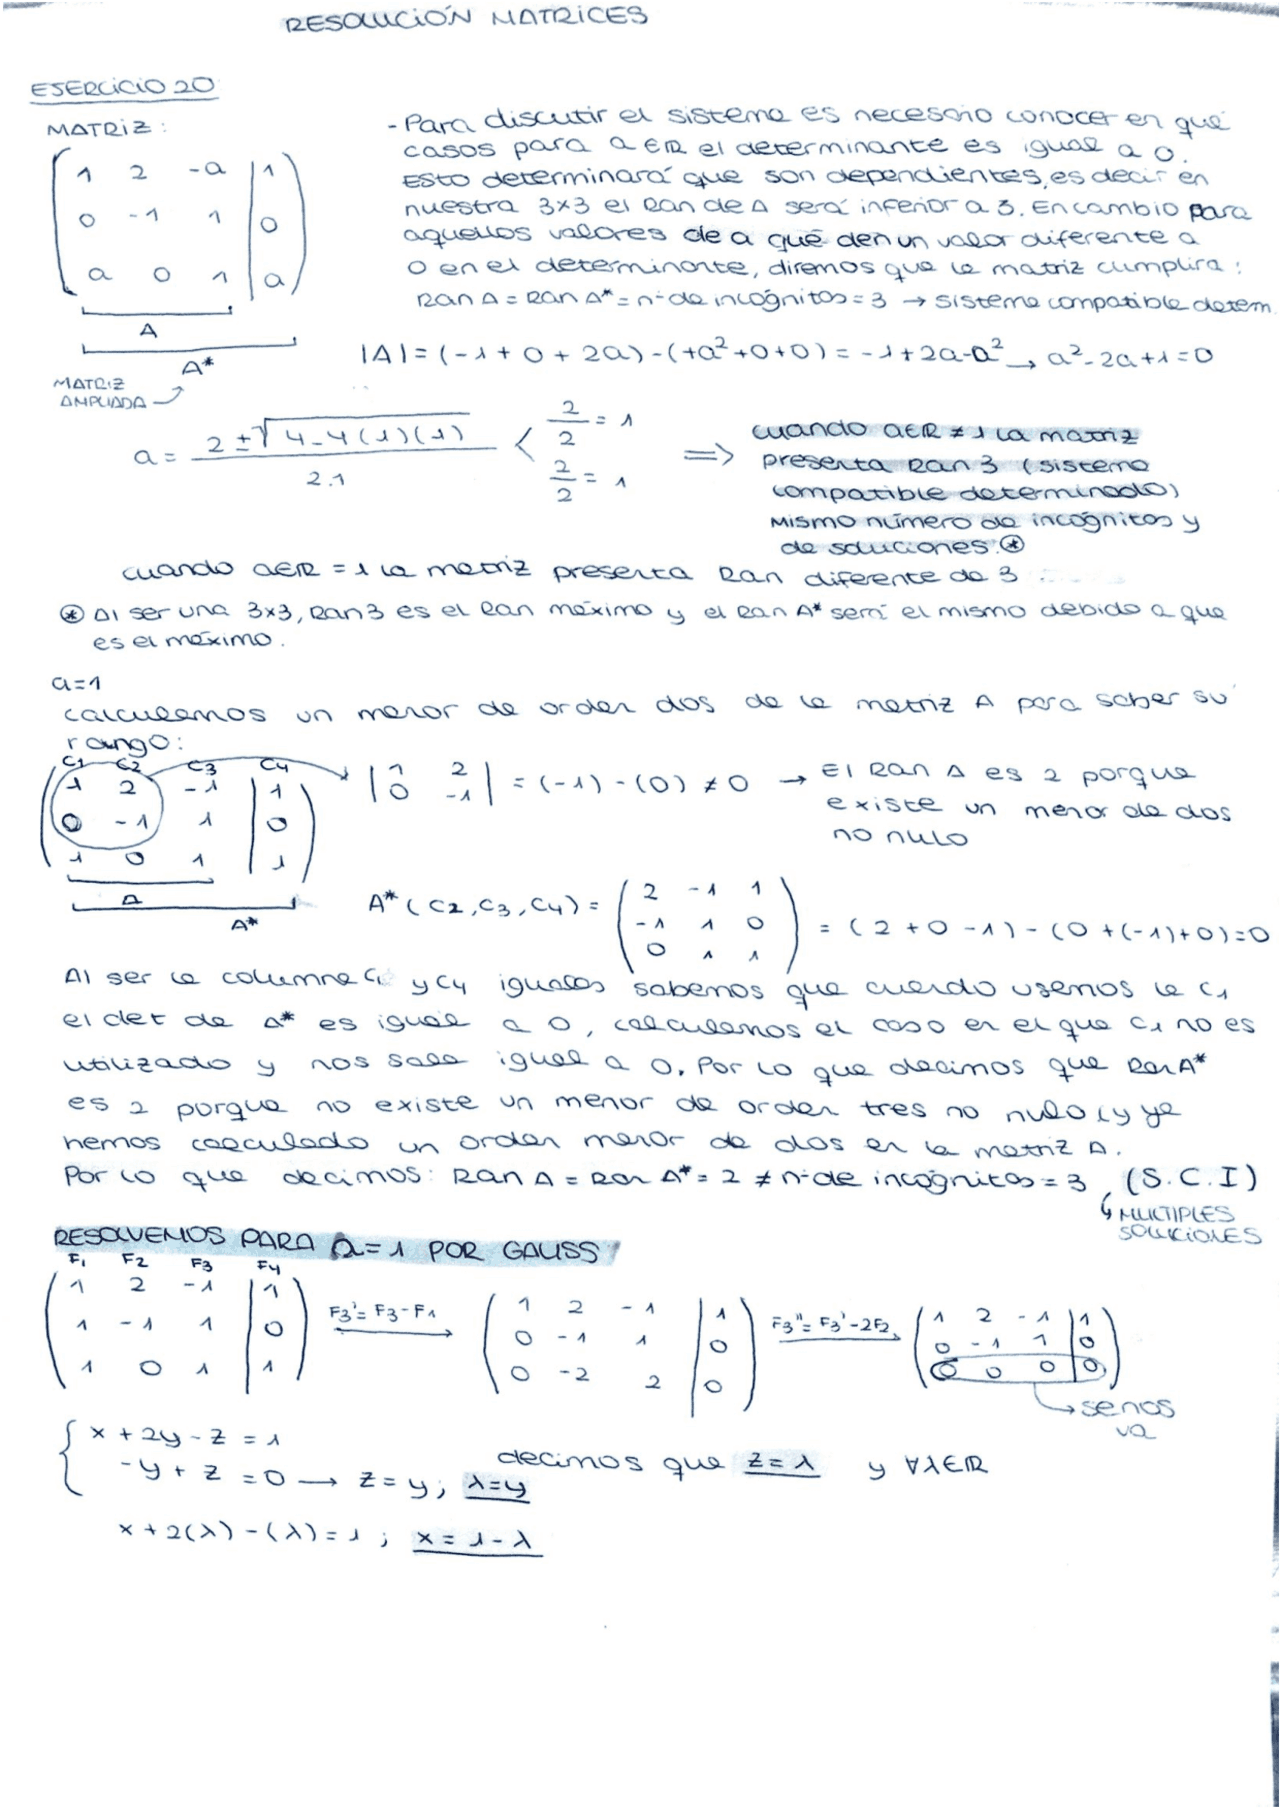 RESOLUCIÓN MATRICES
EJERCICIO 20
MATRIZ:
1 2 -a | 1
0 -1 1 | 0
a 0 1 | a
A
A*
MATRIZ
AMPLIADA
- Para discutir el sistema es necesario conocer en que
casos para a∈R el determinante es igual a 0.
Esto determinará que son dependientes, es decir en
nuestra 3x3 el Ran de A será inferior a 3. En cambio para
aquellos valores de a que den un valor diferente a
0 en el determinante, diremos que la matriz cumplira:
Ran A = Ran A* = nº de incógnitas = 3 → sistema compatible determ.
|A| = (-1 + 0 + 2a) - (+a²+0+0) = -1+2a-a² → a²-2a+1=0
a = 2 ± √4-4(1)(1) / 2.1 < 2/2 = 1
2/2 = 1
=> cuando a∈R ≠ 1 la matriz
presenta Ran 3 (sistema
compatible determinado)
Mismo número de incógnitas y
de soluciones.⊛
cuando a∈R = 1 la matriz presenta Ran diferente de 3
⊛ Al ser una 3x3, Ran 3 es el Ran máximo y el Ran A* será el mismo debido a que
es el máximo.
a=1
calculamos un menor de orden dos de la matriz A para saber su
rango:
C1 C2 C3 C4
1 2 -1 | 1
0 -1 1 | 0
1 0 1 | 1
A
A*
| 1 2 |
| 0 -1 | = (-1) - (0) ≠ 0 → El Ran A es 2 porque
existe un menor de dos
no nulo
A* (C2, C3, C4) =
2 -1 1
-1 1 0
0 1 1
= (2 + 0 - 1) - (0 + (-1) + 0) = 0
Al ser la columna C1 y C4 iguales sabemos que cuando usemos la C1
el det de A* es igual a 0, calculamos el caso en el que C1 no es
utilizado y nos sale igual a 0. Por lo que decimos que Ran A*
es 2 porque no existe un menor de orden tres no nulo (y ya
hemos calculado un orden menor de dos en la matriz A.
Por lo que decimos: Ran A = Ran A* = 2 ≠ nº de incógnitas = 3 (S.C.I)
MULTIPLES
SOLUCIONES
RESOLVEMOS PARA a=1 POR GAUSS
F1 F2 F3 F4
1 2 -1 | 1
1 -1 1 | 0
1 0 1 | 1
F3' = F3 - F1
1 2 -1 | 1
0 -1 1 | 0
0 -2 2 | 0
F3'' = F3' - 2F2
1 2 -1 | 1
0 -1 1 | 0
0 0 0 | 0
→ se nos
va
x + 2y - z = 1
-y + z = 0 → z = y; λ=y
decimos que z = λ y ∀λ∈R
x + 2(λ) - (λ) = 1; x = 1 - λ